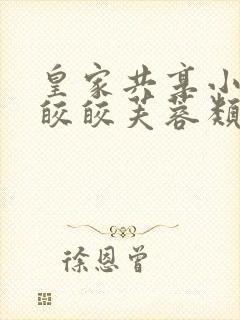 皇家共享小
皎皎芙蓉類
徐恩曾